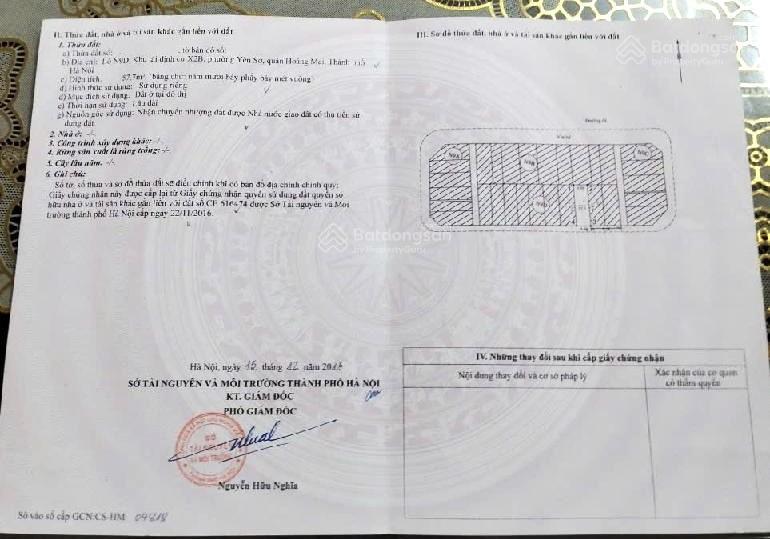 II. Thửa đất, nhà ở và tài sản khác gắn liền với đất
1. Thửa đất:
a) Thửa đất số: tờ bản đồ số:
b) Địa chỉ: Lô N9D, Khu tái định cư X2B, phường Yên Sở, quận Hoàng Mai, Thành phố
Hà Nội
c) Diện tích: 57,7m² (bằng chữ: năm mươi bảy phẩy bảy mét vuông)
d) Hình thức sử dụng: Sử dụng riêng
đ) Mục đích sử dụng: Đất ở tại đô thị
e) Thời hạn sử dụng: Lâu dài
g) Nguồn gốc sử dụng: Nhận chuyển nhượng đất được Nhà nước giao đất có thu tiền sử
dụng đất
2. Nhà ở: -/-
3. Công trình xây dựng khác: -/-
4. Rừng sản xuất là rừng trồng: -/-
5. Cây lâu năm: -/-
6. Ghi chú:
Số tờ, số thửa và sơ đồ thửa đất sẽ điều chỉnh khi có bản đồ địa chính chính quy;
Giấy chứng nhận này được cấp lại từ Giấy chứng nhận quyền sử dụng đất quyền sở
hữu nhà ở và tài sản khác gắn liền với đất số được Sở Tài nguyên và Môi
trường thành phố Hà Nội cấp ngày 22/11/2016.
Hà Nội, ngày 15 tháng 12 năm
SỞ TÀI NGUYÊN VÀ MÔI TRƯỜNG THÀNH PHỐ HÀ NỘI
KT. GIÁM ĐỐC
PHÓ GIÁM ĐỐC
Nguyễn Hữu Nghĩa
Số vào sổ cấp GCN:CS-HM
III. Sơ đồ thửa đất, nhà ở và tài sản khác gắn liền với đất
N9B
IV. Những thay đổi sau khi cấp giấy chứng nhận
Nội dung thay đổi và cơ sở pháp lý
Xác nhận của cơ quan
có thẩm quyền
Batdongsan
by PropertyGuru
Batdongsan
by PropertyGuru